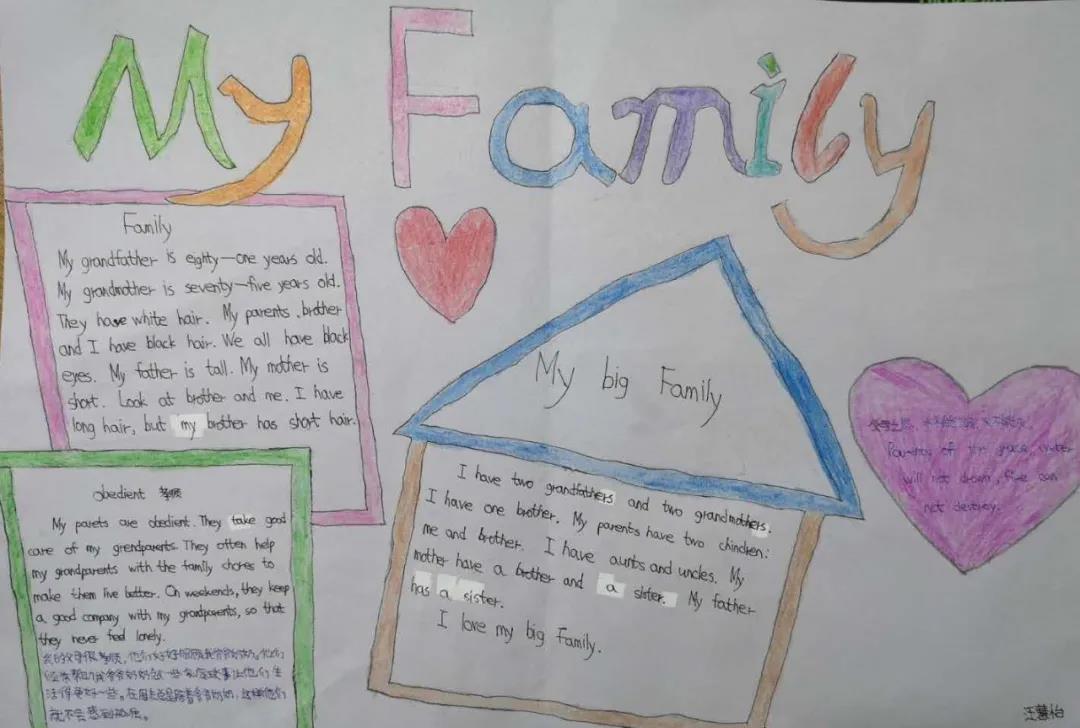 My Family
Family
My grandfather is eighty-one years old.
My grandmother is seventy-five years old.
They have white hair. My parents .brother
and I have black hair. We all have black
eyes. My father is tall. My mother is
short. Look at brother and me. I have
long hair, but my brother has short hair.
obedient 孝顺
My parets are obedient. They take good
care of my grendparents. They often help
my grandparents with the family chores to
make them live better. On weekends, they keep
a good company with my grandparents, so that
they never feel lonely.
我的父母很孝顺,他们好好照顾我爷爷奶奶。他们
经常帮助我爷爷奶奶做一些家庭琐事让他们生
活得更好一些。在周末总是陪着爷爷奶奶,这样他们
就不会感到孤独。
My big Family
I have two grandfathers and two grandmothers.
I have one brother. My parents have two chincken:
me and brother. I have aunts and uncles. My
mother have a brother and a sister. My father
has a sister.
I love my big Family.
父母之恩,水不能溺,火不能灭。
Parents of the grace, water
will not drown, fire can
not destroy.
汪慧怡